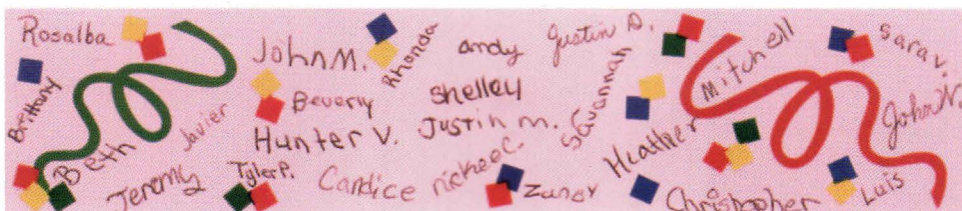 Rosalba
Brittany
Beth
Javier
Jeremy
Tyler P.
John M.
Beverly
Hunter V.
Candice
Rhonda
andy
Shelley
Justin m.
Justin D.
Savannah
Heather
Mitchell
Christopher
Sara v.
John N.
Luis